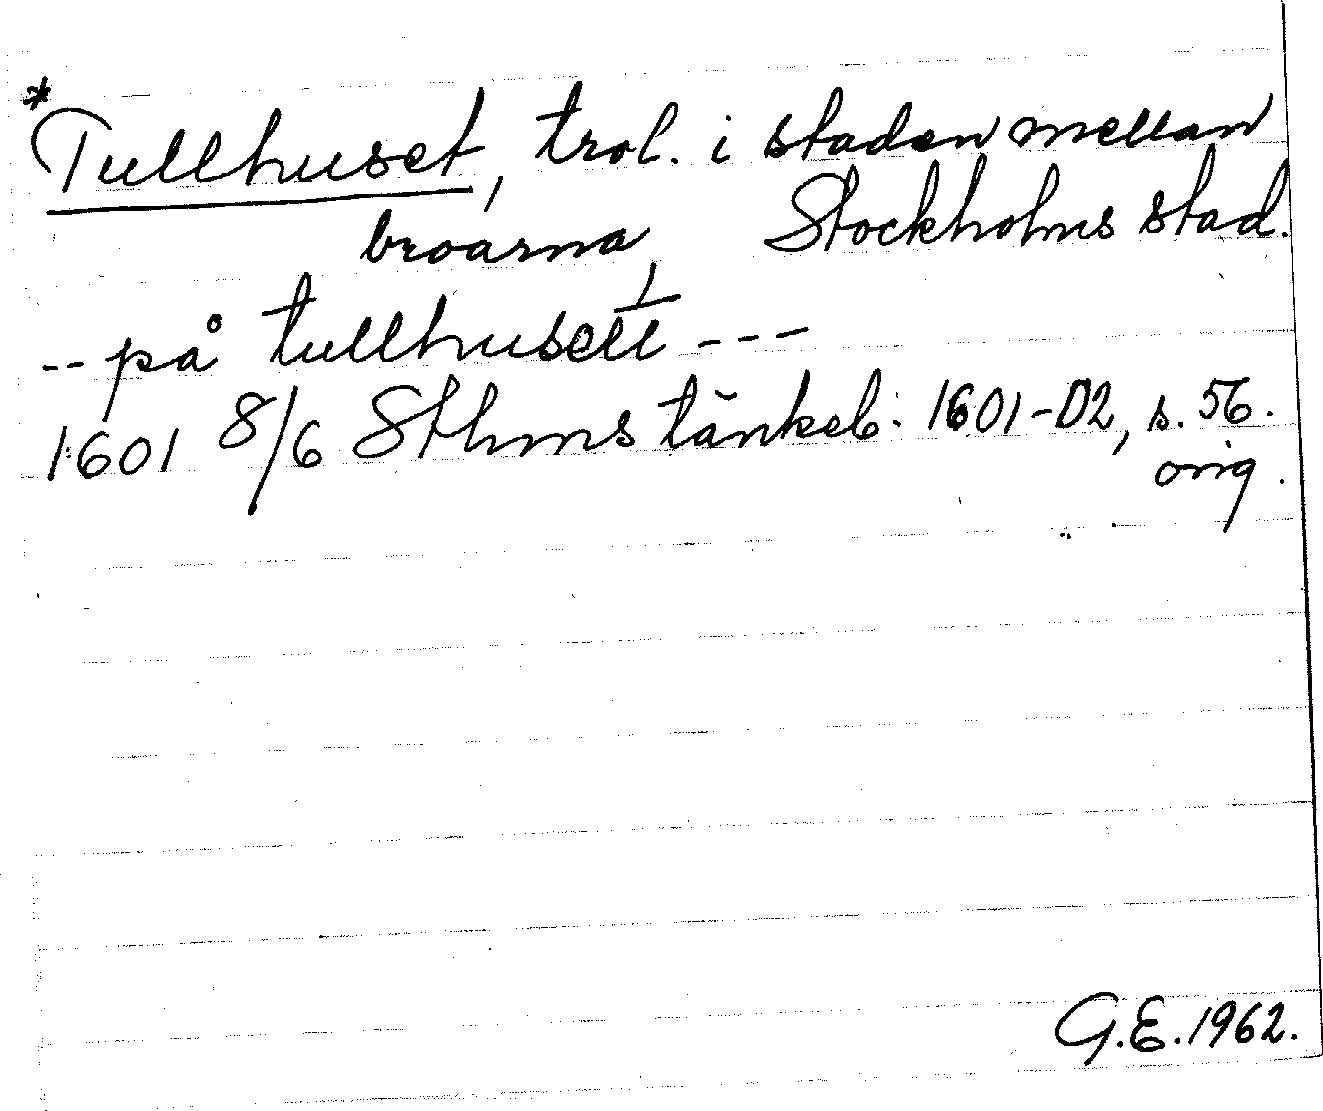 *Tullhuset, trol. i staden mellan
broarna, Stockholms stad.
-- på tullhusett ---
1601 8/6 Sthms tänkeb. 1601-02, s. 56.
orig.
G.E. 1962.